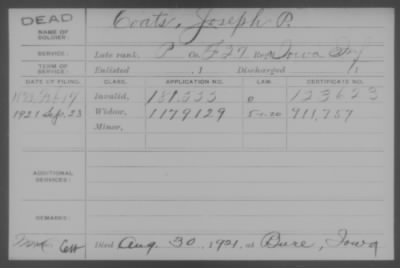 DEAD
NAME OF SOLDIER:
Coats, Joseph P.
SERVICE:
Late rank, P Co. F 27 Reg't Iowa Inf
TERM OF SERVICE:
Enlisted , 1 Discharged , 1
DATE OF FILING. CLASS. APPLICATION NO. LAW. CERTIFICATE NO.
Invalid, 181,333 123623
1921 Sep. 23 Widow, 1179129 5-1-20 911,757
Minor,
ADDITIONAL SERVICES:
REMARKS:
Died Aug. 30, 1921, at , Iowa